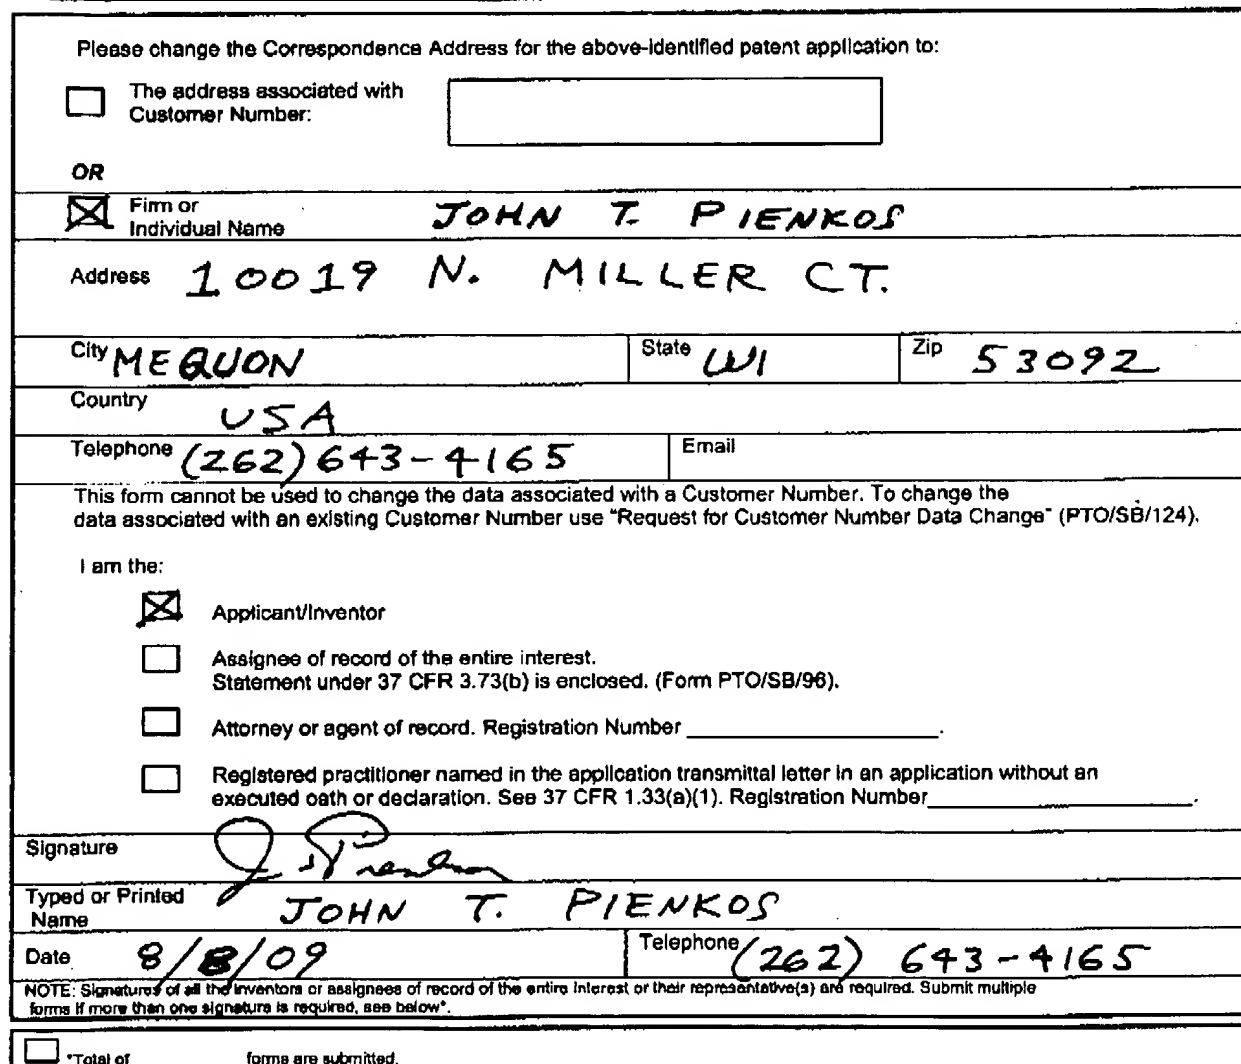 Please change the Correspondence Address for the above-identified patent application to:
The address associated with
Customer Number:
OR
Firm or
Individual Name JOHN T. PIENKOS
Address 10019 N. MILLER CT.
City MEQUON State WI Zip 53092
Country USA
Telephone (262) 643-4165 Email
This form cannot be used to change the data associated with a Customer Number. To change the
data associated with an existing Customer Number use "Request for Customer Number Data Change" (PTO/SB/124).
I am the:
Applicant/Inventor
Assignee of record of the entire interest.
Statement under 37 CFR 3.73(b) is enclosed. (Form PTO/SB/96).
Attorney or agent of record. Registration Number ____________________.
Registered practitioner named in the application transmittal letter in an application without an
executed oath or declaration. See 37 CFR 1.33(a)(1). Registration Number____________________.
Signature
Typed or Printed
Name JOHN T. PIENKOS
Date 8/8/09 Telephone (262) 643-4165
NOTE: Signatures of all the inventors or assignees of record of the entire interest or their representative(s) are required. Submit multiple
forms if more than one signature is required, see below*.
*Total of __________ forms are submitted.